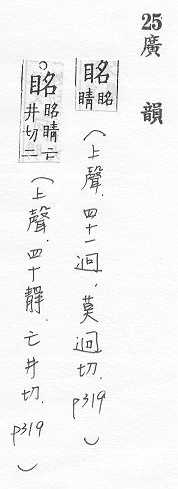 25 廣韻
眳 眳睛 (上聲.四十一迥.莫迥切.p319)
○眳 眳睛亡井切二 (上聲.四十靜.亡井切.p319)